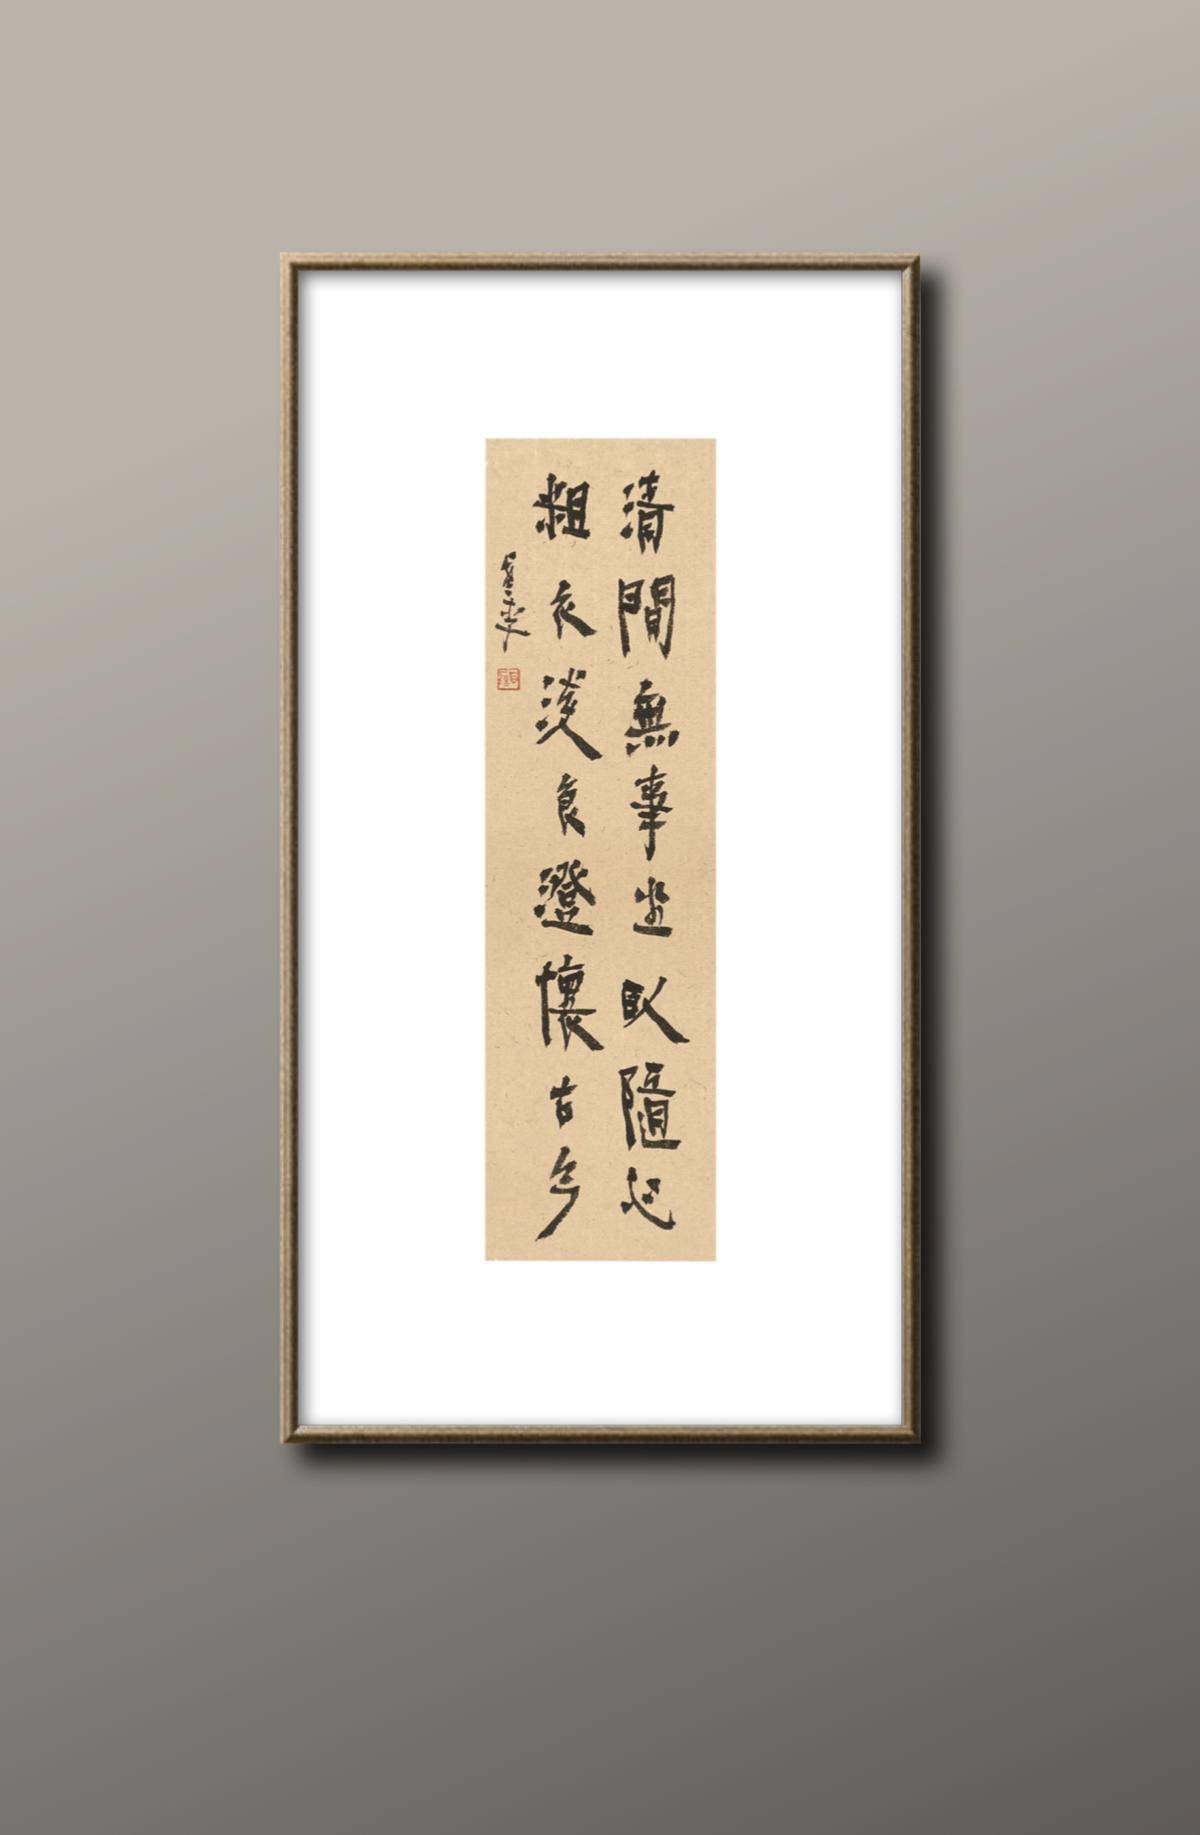 清間無事坐臥隨起
粗衣淡食澄懷古今